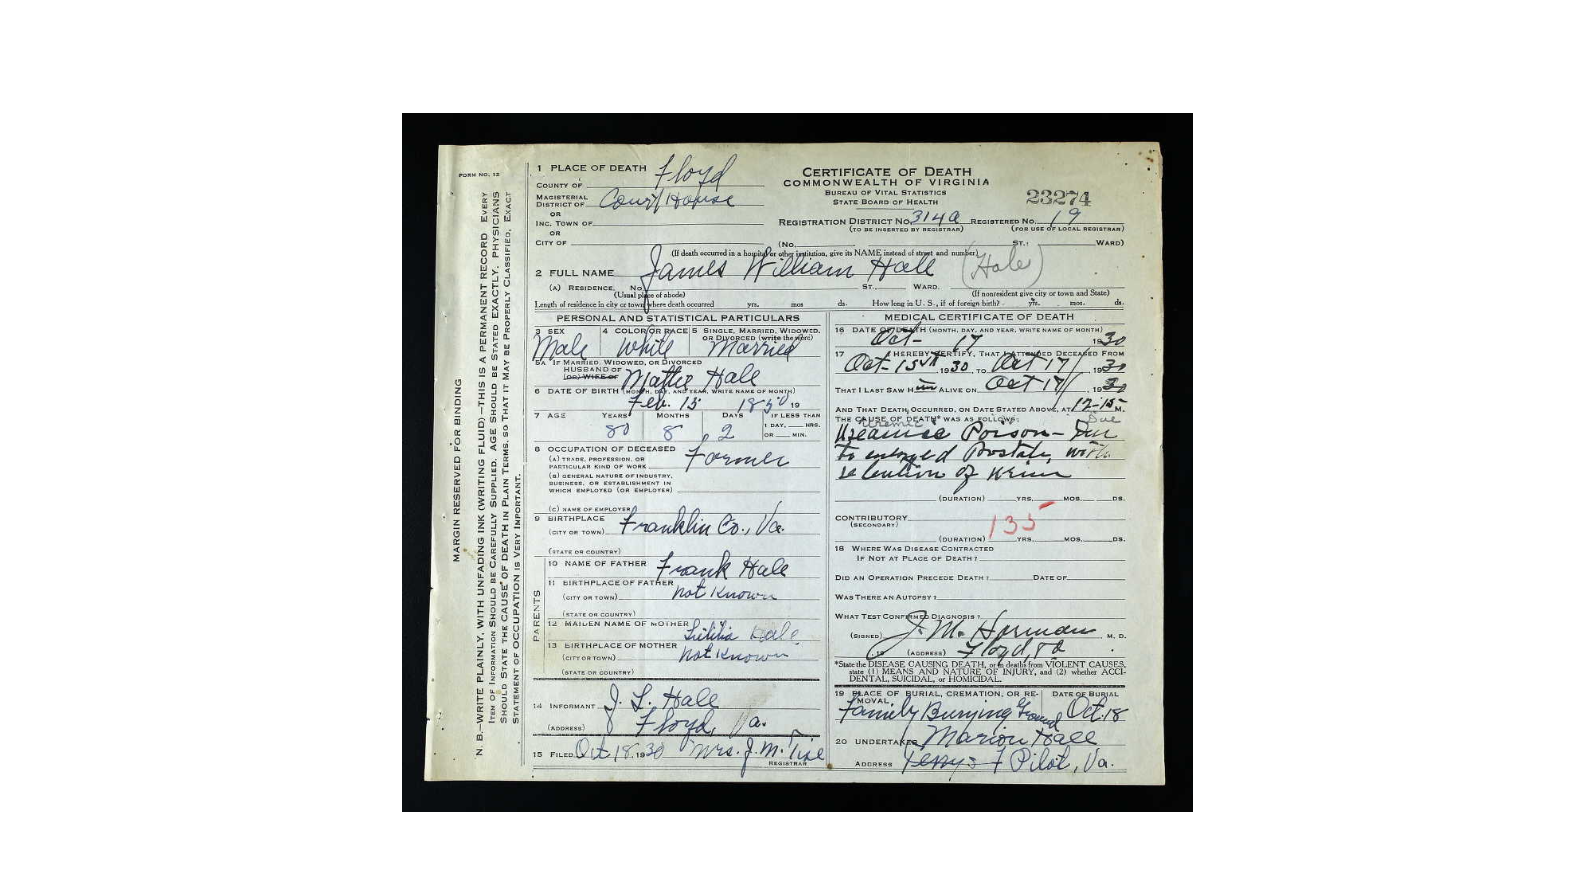 FORM NO. 12
MARGIN RESERVED FOR BINDING
N. B.—WRITE PLAINLY, WITH UNFADING INK (WRITING FLUID)—THIS IS A PERMANENT RECORD. EVERY
ITEM OF INFORMATION SHOULD BE CAREFULLY SUPPLIED. AGE SHOULD BE STATED EXACTLY. PHYSICIANS
SHOULD STATE THE CAUSE OF DEATH IN PLAIN TERMS, SO THAT IT MAY BE PROPERLY CLASSIFIED. EXACT
STATEMENT OF OCCUPATION IS VERY IMPORTANT.
1 PLACE OF DEATH
COUNTY OF Floyd
MAGISTERIAL DISTRICT OF Court House
OR
INC. TOWN OF
OR
CITY OF
CERTIFICATE OF DEATH
COMMONWEALTH OF VIRGINIA
BUREAU OF VITAL STATISTICS
STATE BOARD OF HEALTH
23274
REGISTRATION DISTRICT NO. 314a REGISTERED NO. 19
(TO BE INSERTED BY REGISTRAR) (FOR USE OF LOCAL REGISTRAR)
(No. ST.; WARD)
(If death occurred in a hospital or other institution, give its NAME instead of street and number)
2 FULL NAME James William Hall (Hale)
(A) RESIDENCE. No. ST. WARD.
(Usual place of abode) (If nonresident give city or town and State)
Length of residence in city or town where death occurred yrs. mos ds. How long in U. S., if of foreign birth? yrs. mos. ds.
PERSONAL AND STATISTICAL PARTICULARS
3 SEX Male
4 COLOR OR RACE White
5 SINGLE, MARRIED, WIDOWED, OR DIVORCED (write the word) Married
5A IF MARRIED, WIDOWED, OR DIVORCED
HUSBAND OF
(OR) WIFE OF Mattie Hall
6 DATE OF BIRTH (MONTH, DAY, AND YEAR, WRITE NAME OF MONTH)
Feb. 15 1850 19
7 AGE YEARS MONTHS DAYS IF LESS THAN
1 DAY, HRS.
OR MIN.
80 8 2
8 OCCUPATION OF DECEASED
(A) TRADE, PROFESSION, OR
PARTICULAR KIND OF WORK Farmer
(B) GENERAL NATURE OF INDUSTRY,
BUSINESS, OR ESTABLISHMENT IN
WHICH EMPLOYED (OR EMPLOYER)
(C) NAME OF EMPLOYER
9 BIRTHPLACE
(CITY OR TOWN) Franklin Co., Va.
(STATE OR COUNTRY)
PARENTS
10 NAME OF FATHER Frank Hall
11 BIRTHPLACE OF FATHER
(CITY OR TOWN) not Known
(STATE OR COUNTRY)
12 MAIDEN NAME OF MOTHER
13 BIRTHPLACE OF MOTHER
(CITY OR TOWN) not Known
(STATE OR COUNTRY)
14 INFORMANT J. L. Hall
(ADDRESS) Floyd, Va.
15 FILED Oct. 18, 1930 Mrs. J. M.
REGISTRAR
MEDICAL CERTIFICATE OF DEATH
16 DATE OF DEATH (MONTH, DAY, AND YEAR, WRITE NAME OF MONTH)
Oct- 17 1930
17 I HEREBY CERTIFY, THAT I ATTENDED DECEASED FROM
Oct-15th 1930, TO Oct 17/ 1930
THAT I LAST SAW HIM ALIVE ON Oct 17/ 1930
AND THAT DEATH OCCURRED, ON DATE STATED ABOVE, AT 12-15 M.
THE CAUSE OF DEATH* WAS AS FOLLOWS:
Uremic Due
Poison- Due
to enlarged Prostate, with
retention of Urine
(DURATION) YRS. MOS. DS.
CONTRIBUTORY
(SECONDARY)
135
(DURATION) YRS. MOS. DS.
18 WHERE WAS DISEASE CONTRACTED
IF NOT AT PLACE OF DEATH?
DID AN OPERATION PRECEDE DEATH? DATE OF
WAS THERE AN AUTOPSY?
WHAT TEST CONFIRMED DIAGNOSIS?
(SIGNED) J. M. Harman M. D.
19 (ADDRESS) Floyd, Va
*State the DISEASE CAUSING DEATH, or in deaths from VIOLENT CAUSES,
state (1) MEANS AND NATURE OF INJURY, and (2) whether ACCI-
DENTAL, SUICIDAL, or HOMICIDAL.
19 PLACE OF BURIAL, CREMATION, OR RE- DATE OF BURIAL
MOVAL
Family Burying Ground Oct. 18
20 UNDERTAKER Marion Hall
ADDRESS Pilot, Va.